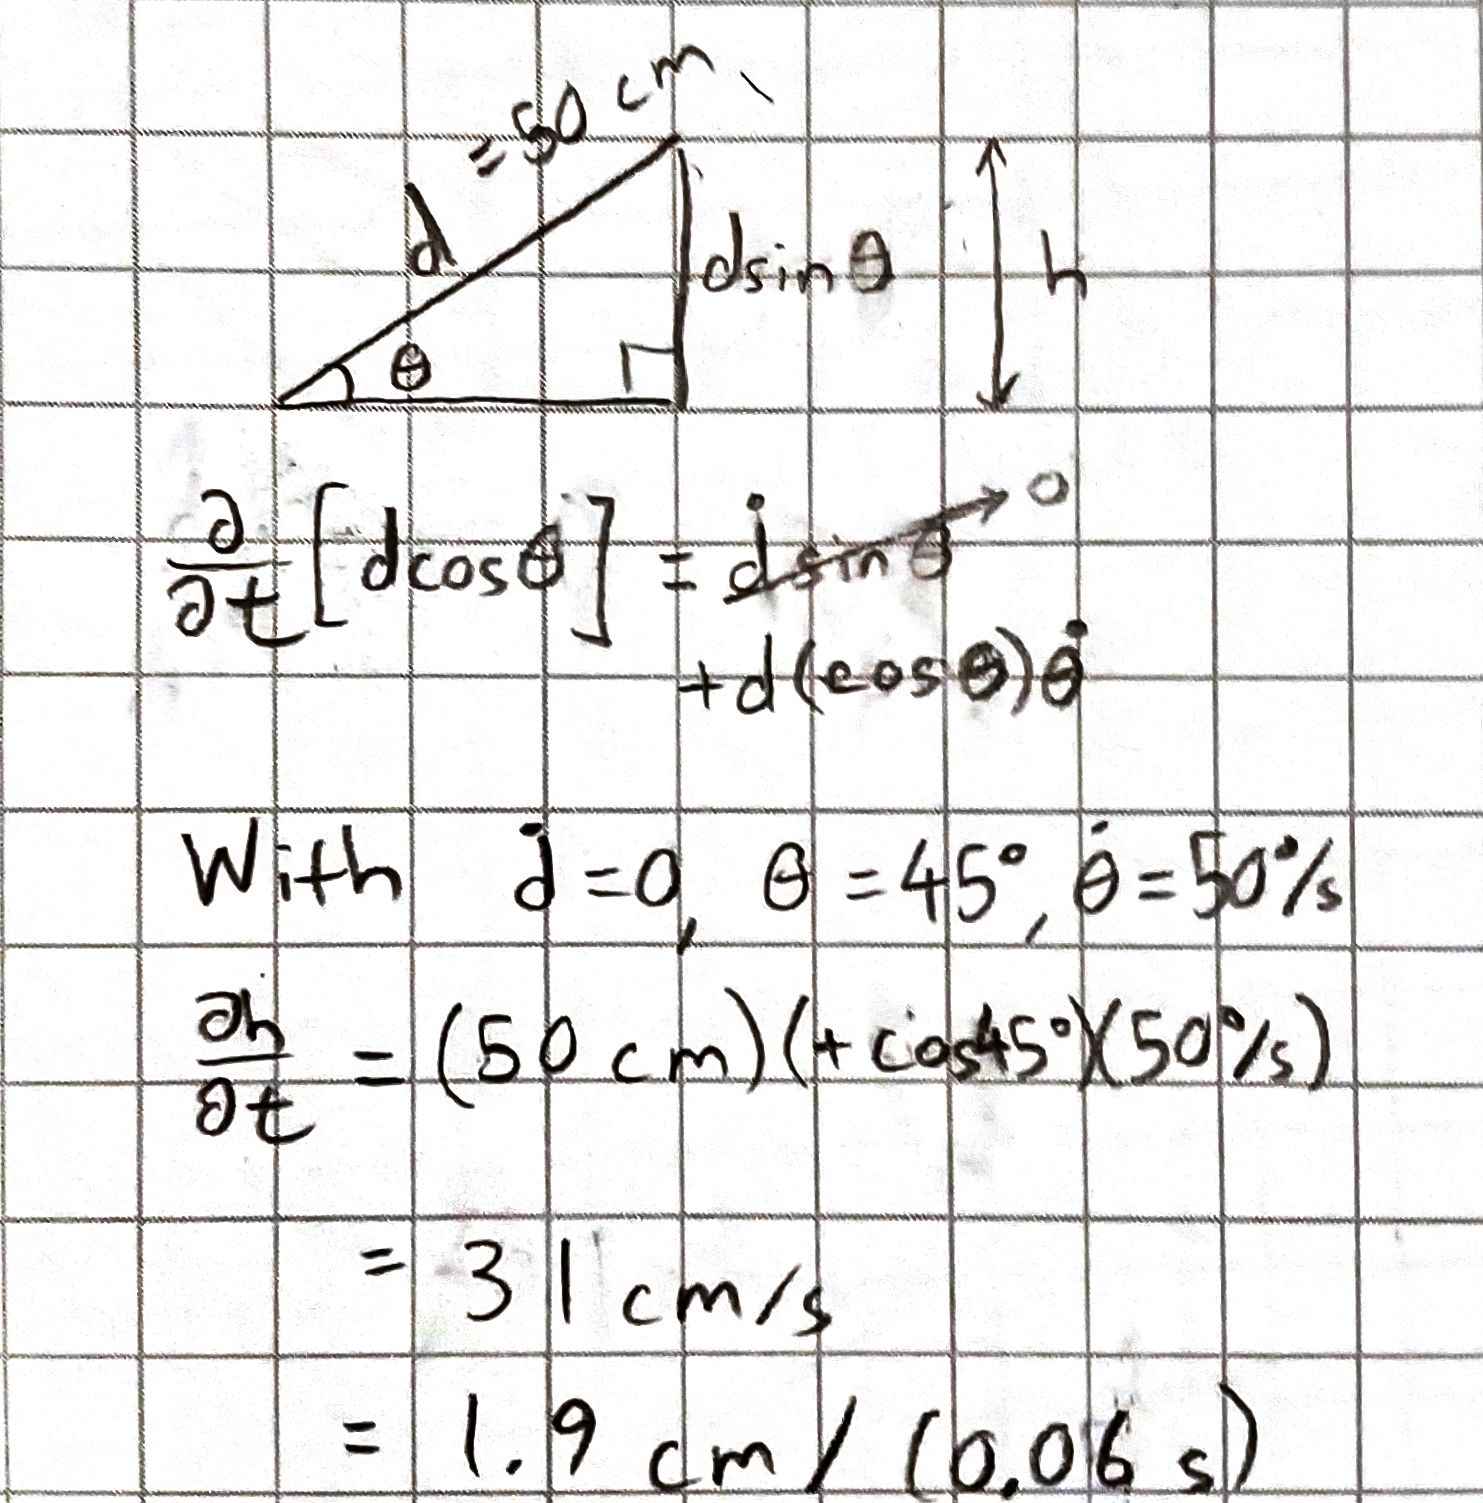 d = 50 cm
d sin θ
h
θ
∂/∂t [d cos θ] = ḋ sin θ → 0
+ d (cos θ) θ̇
With ḋ = 0, θ = 45°, θ̇ = 50°/s
∂h/∂t = (50 cm)(+ cos 45°)(50°/s)
= 31 cm/s
= 1.9 cm / (0.06 s)